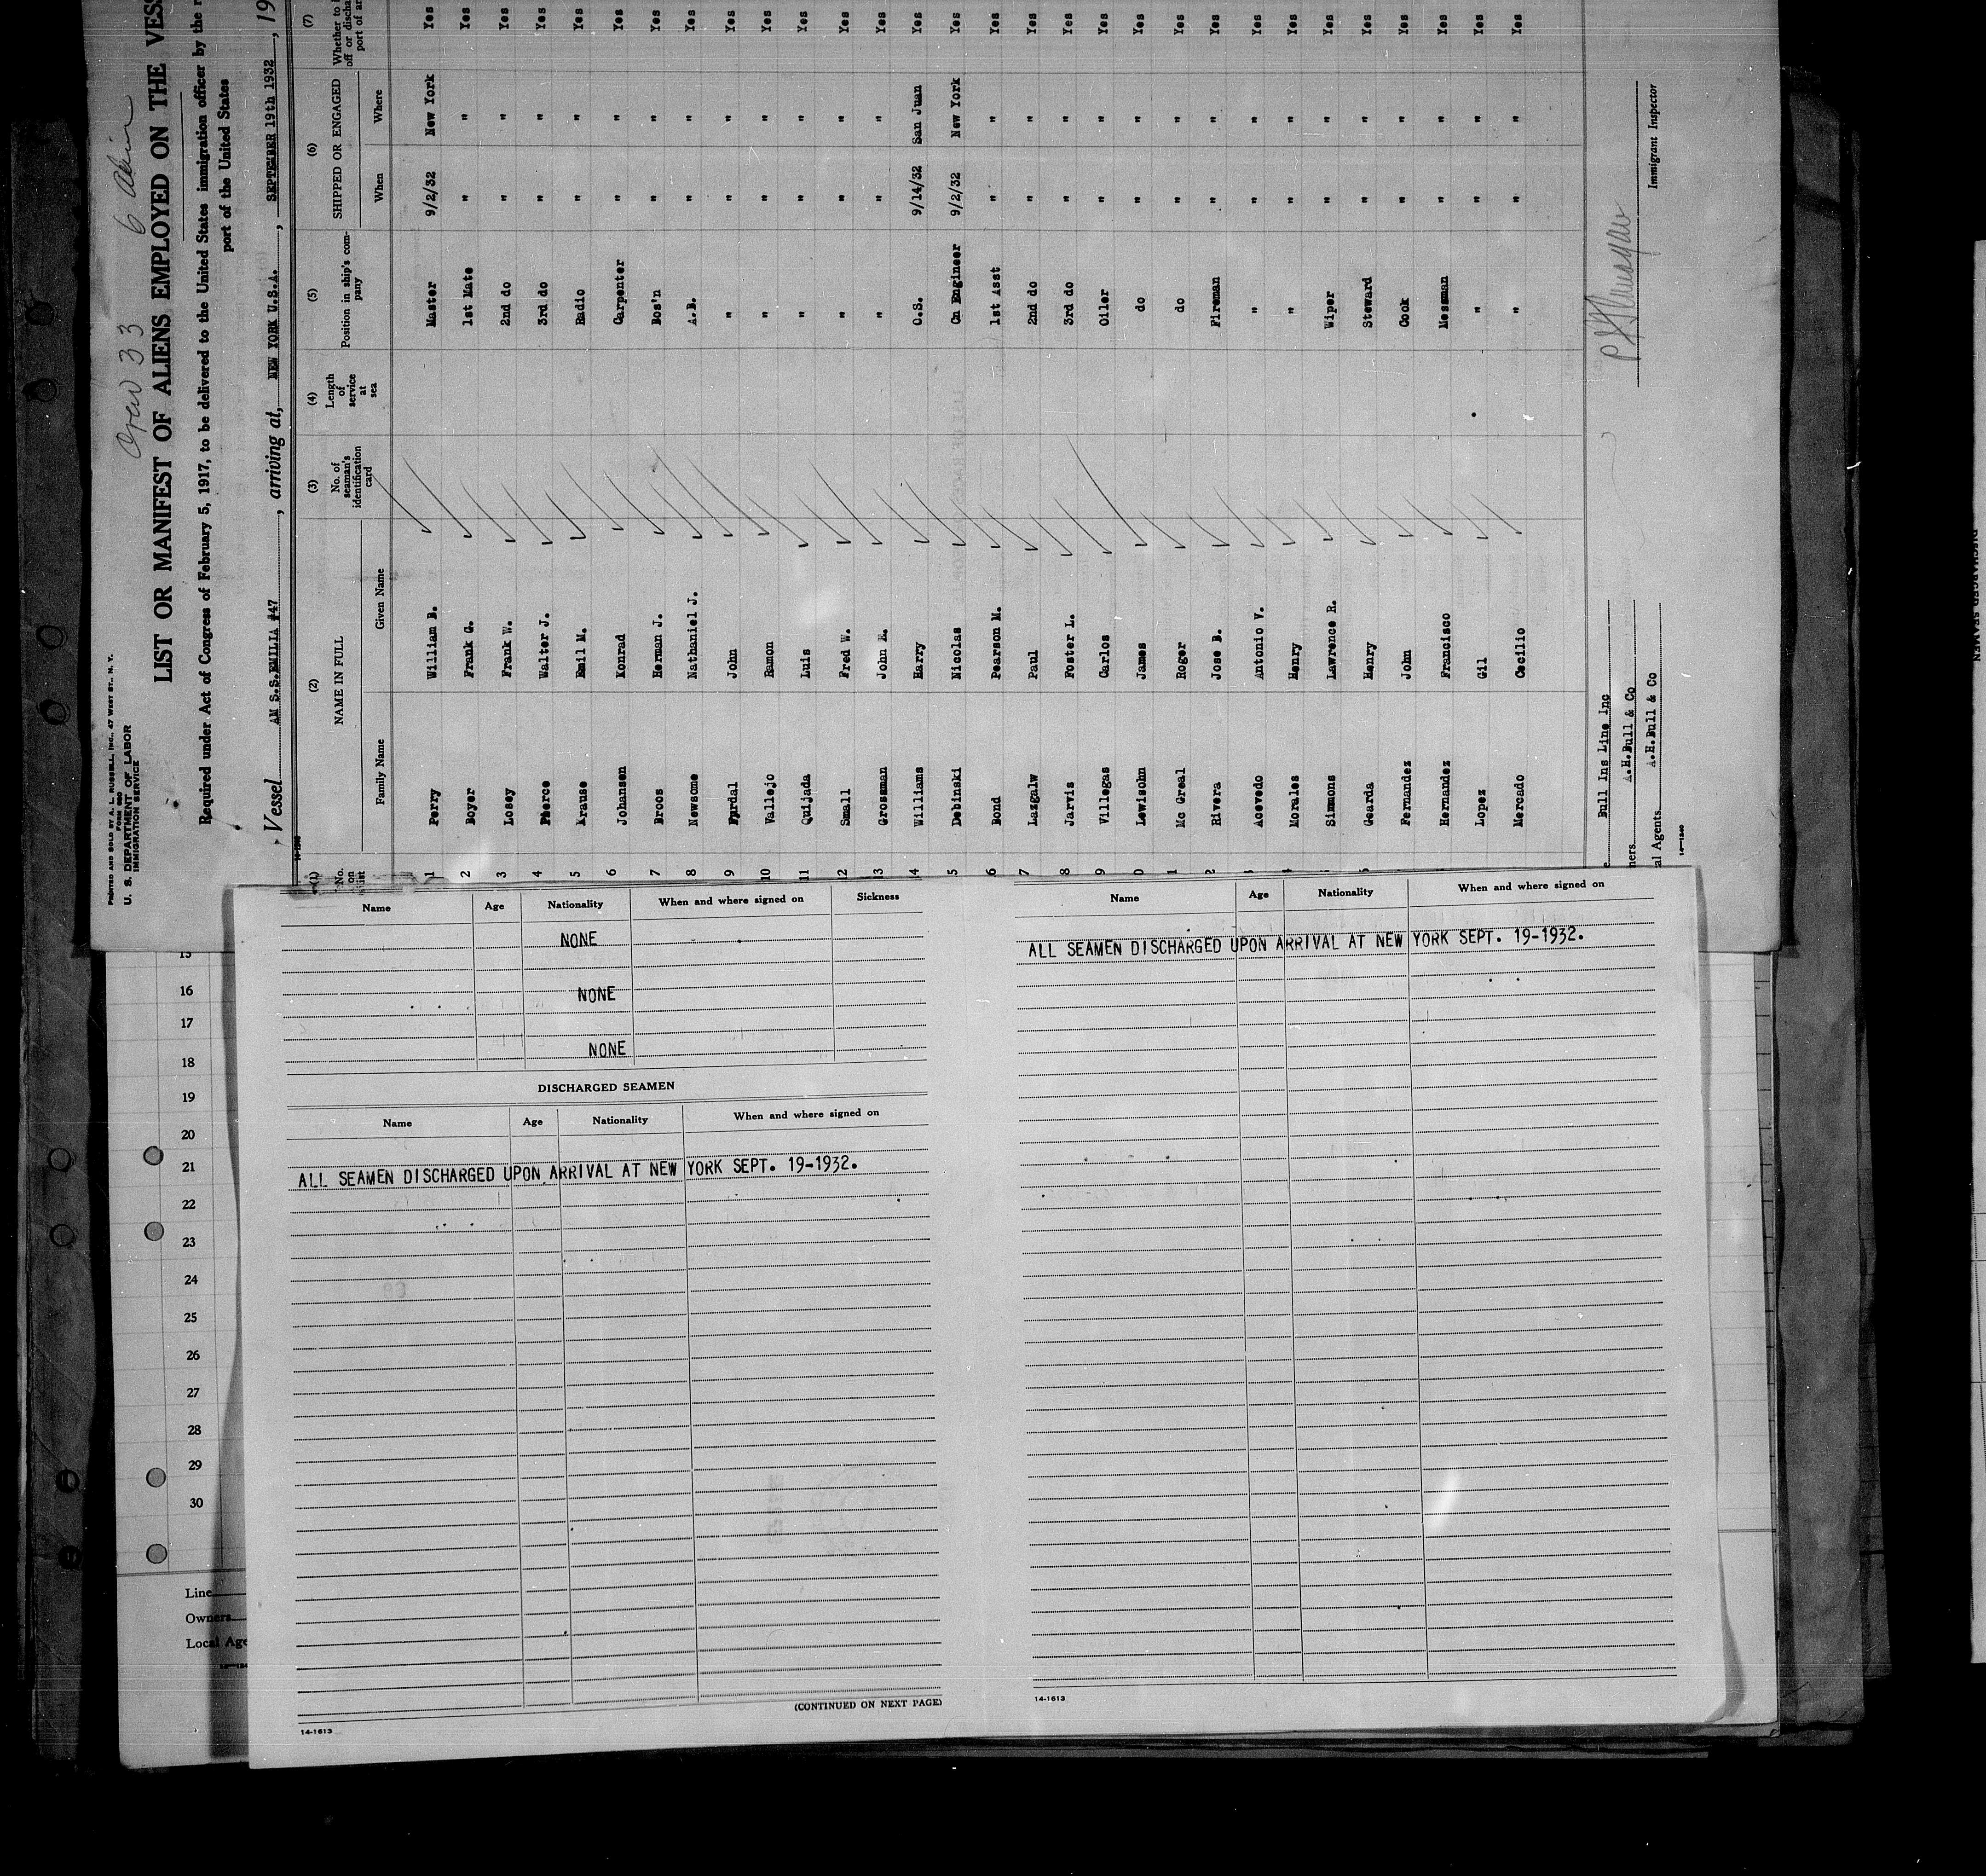 PRINTED AND SOLD BY A. L. RUSSELL, INC., 47 WEST ST., N. Y.
FORM 680
U. S. DEPARTMENT OF LABOR
IMMIGRATION SERVICE
Crew 33 6
LIST OR MANIFEST OF ALIENS EMPLOYED ON THE VESS
Required under Act of Congress of February 5, 1917, to be delivered to the United States immigration officer by the r
port of the United States
Vessel AM S.S.EMILIA #47, arriving at, NEW YORK U.S.A., SEPTEMBER 19th 1932, 19
(1) (2) (3) (4) (5) (6) (7)
No. on list NAME IN FULL No. of seaman's identification card Length of service at sea Position in ship's company SHIPPED OR ENGAGED Whether to
Family Name Given Name When Where
1 Perry William B. Master 9/2/32 New York Yes
2 Boyer Frank G. 1st Mate " " Yes
3 Losey Frank W. 2nd do " " Yes
4 Pierce Walter J. 3rd do " " Yes
5 Krause Emil M. Radio " " Yes
6 Johansen Konrad Carpenter " " Yes
7 Broos Herman J. Bos'n " " Yes
8 Newsome Nathaniel J. A.B. " " Yes
9 John " " " Yes
10 Vallejo Ramon " " " Yes
11 Quijada Luis " " " Yes
12 Small Fred W. " " " Yes
13 Grossman John E. " " " Yes
14 Williams Harry O.S. 9/14/32 San Juan Yes
5 Debinski Nicolas Ch Engineer 9/2/32 New York Yes
6 Bond Pearson M. 1st Asst " " Yes
7 Lazgalw Paul 2nd do " " Yes
8 Jarvis Foster L. 3rd do " " Yes
9 Villegas Carlos Oiler " " Yes
0 Lewisohn James do " " Yes
1 Mc Greal Roger do " " Yes
2 Rivera Jose B. Fireman " " Yes
Acevedo Antonio V. " " " Yes
Morales Henry " " " Yes
Simmons Lawrence R. Wiper " " Yes
Gearda Henry Steward " " Yes
Fernandez John Cook " " Yes
Hernandez Francisco Messman " " Yes
Lopez Gil " " " Yes
Mercado Cecilio " " " Yes
Bull Ins Line Inc
ners A.H.Bull & Co
al Agents A.H.Bull & Co
Immigrant Inspector
14-1240
Name Age Nationality When and where signed on Sickness
NONE
NONE
NONE
DISCHARGED SEAMEN
Name Age Nationality When and where signed on
ALL SEAMEN DISCHARGED UPON ARRIVAL AT NEW YORK SEPT. 19-1932.
(CONTINUED ON NEXT PAGE)
14-1613
Name Age Nationality When and where signed on
ALL SEAMEN DISCHARGED UPON ARRIVAL AT NEW YORK SEPT. 19-1932.
14-1613
15
16
17
18
19
20
21
22
23
24
25
26
27
28
29
30
Line
Owners
Local Age
DISCHARGED SEAMEN